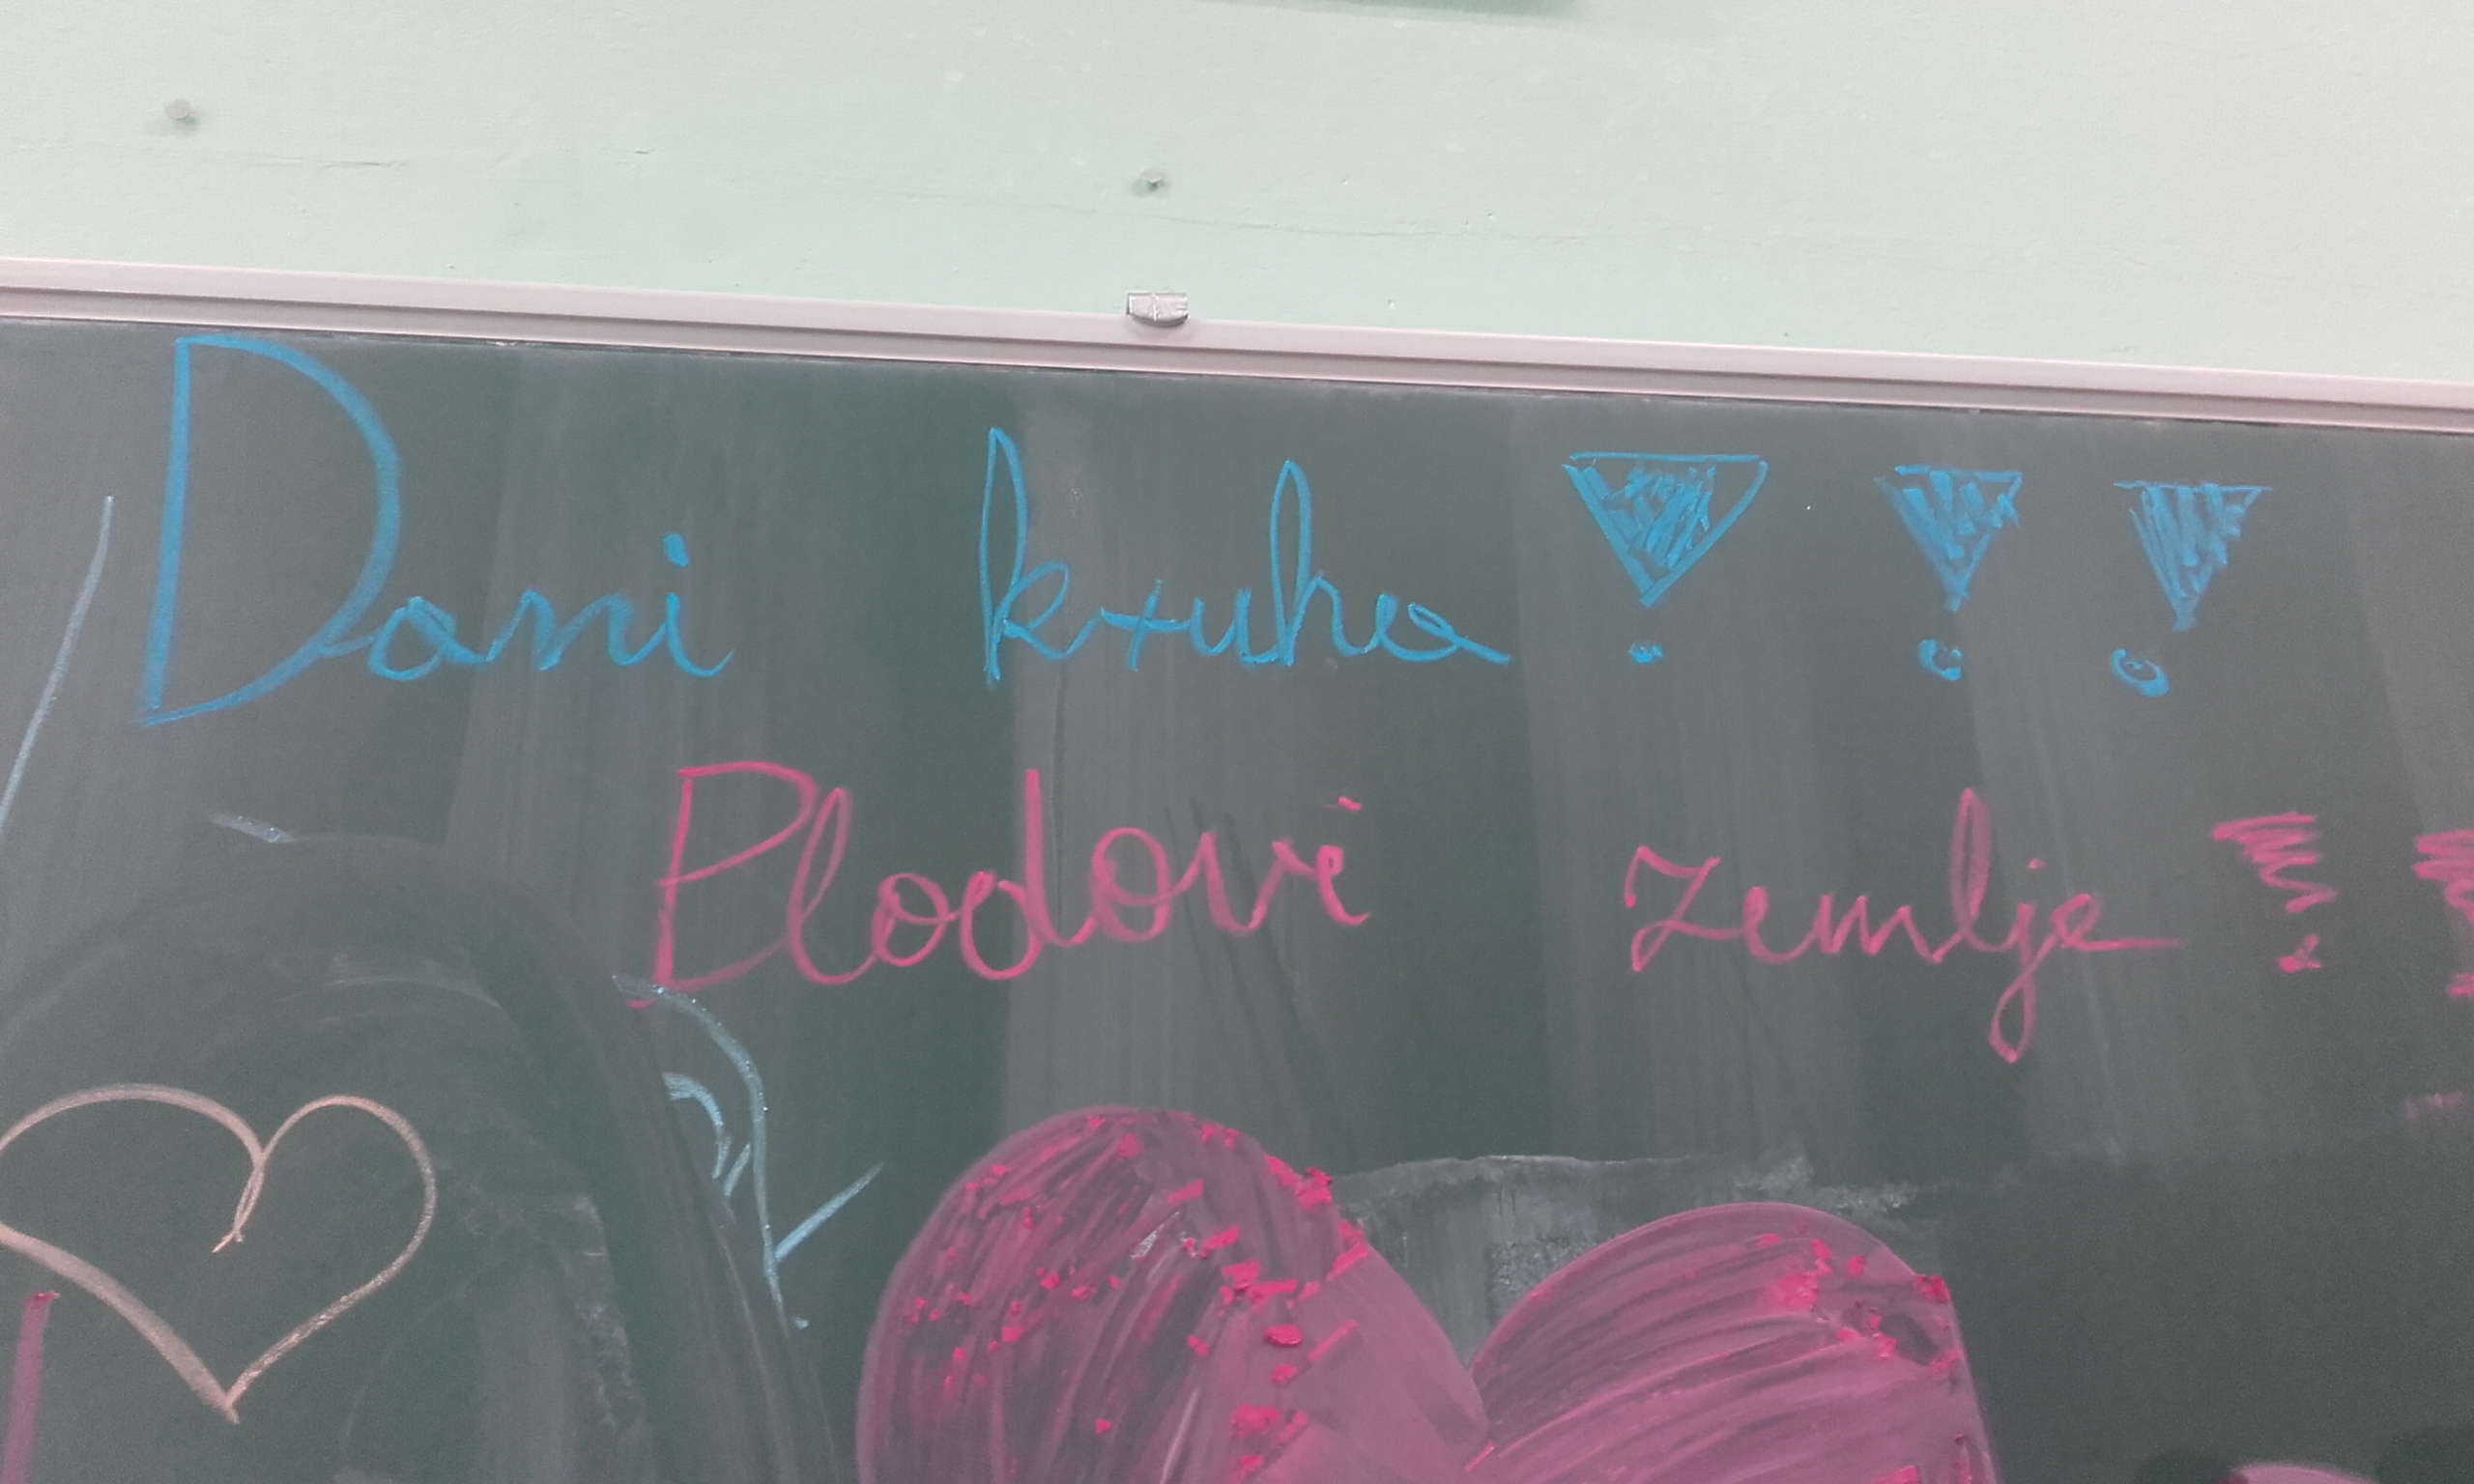 Dani kruha !!!
Plodovi zemlje !!